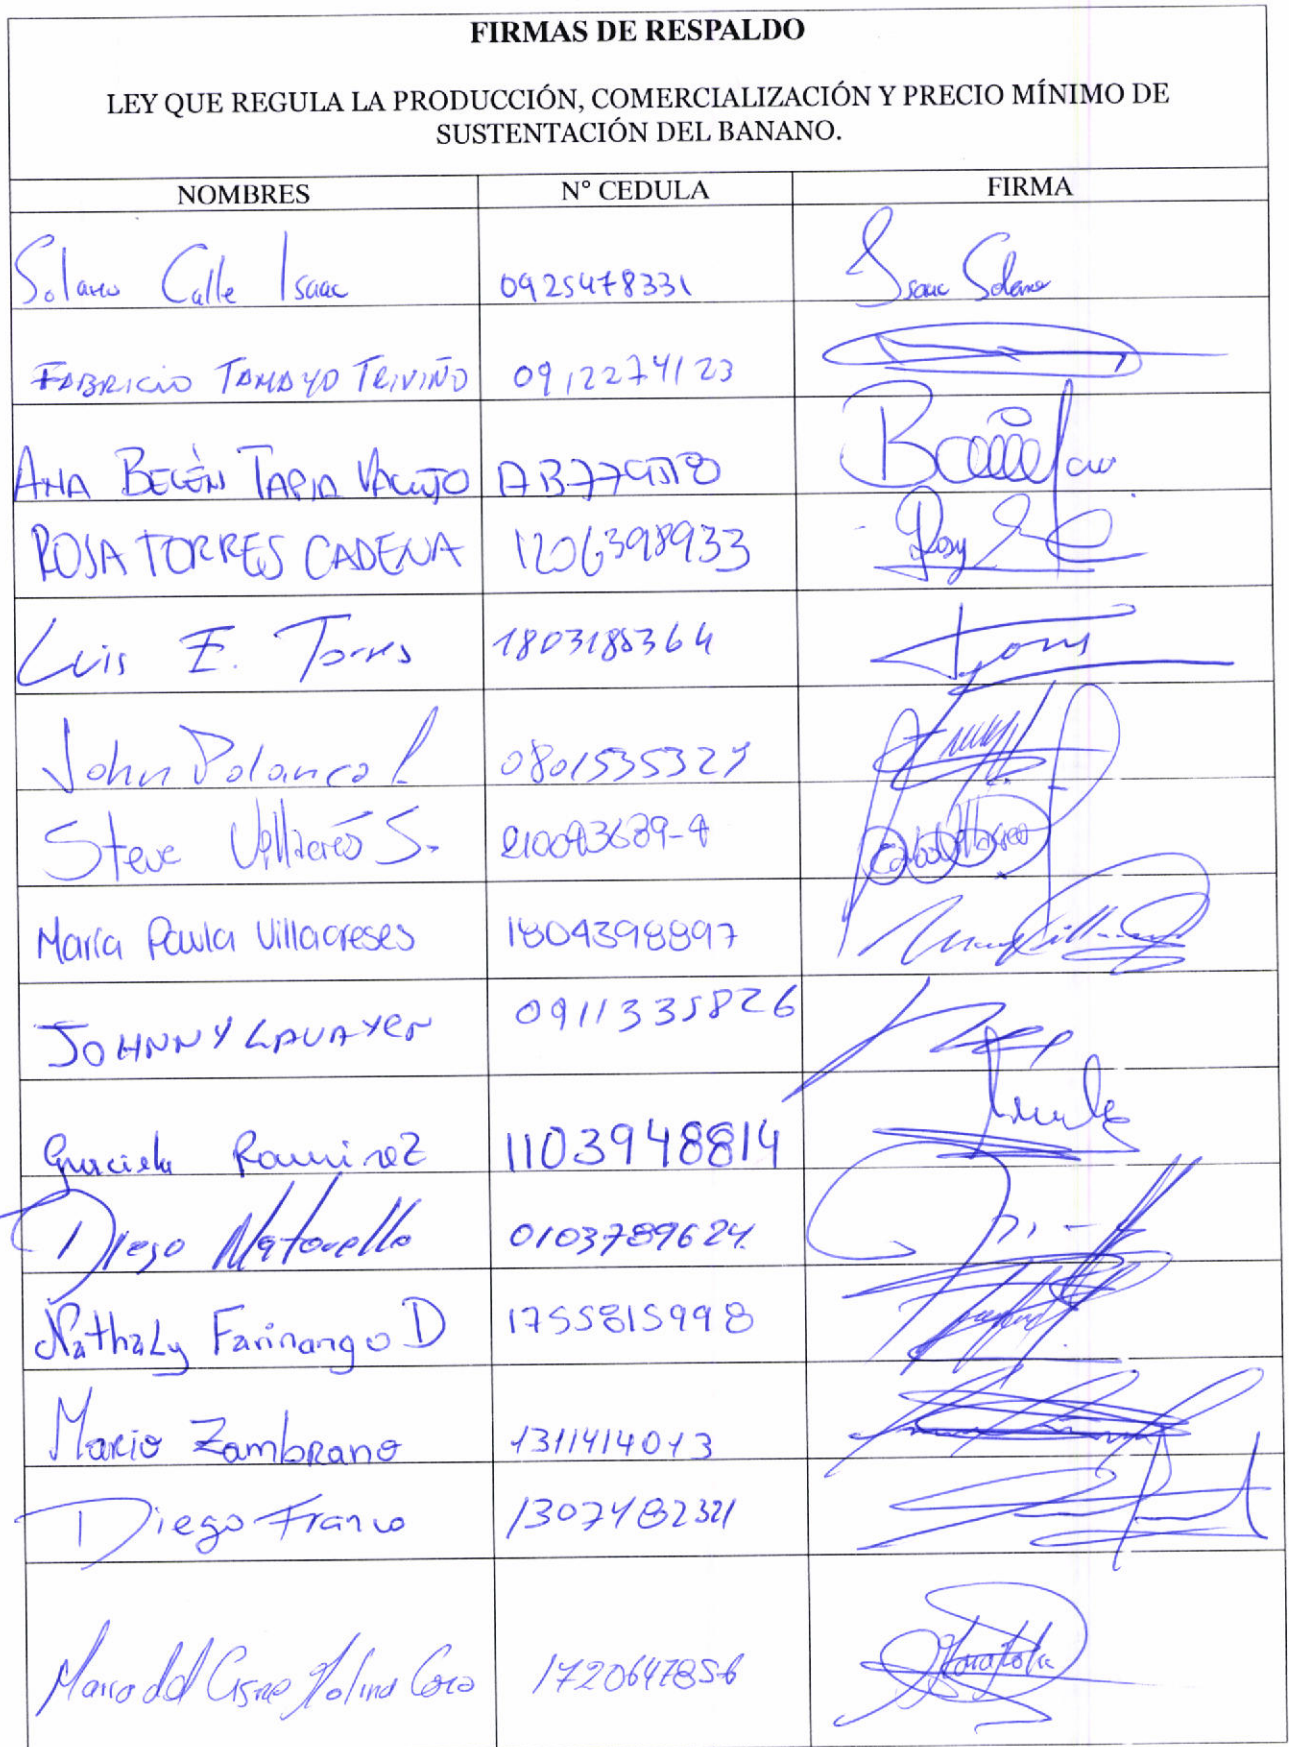 FIRMAS DE RESPALDO
LEY QUE REGULA LA PRODUCCIÓN, COMERCIALIZACIÓN Y PRECIO MÍNIMO DE
SUSTENTACIÓN DEL BANANO.
NOMBRES N° CEDULA FIRMA
Solano Calle Isaac 0925478331 Isaac Solano
FABRICIO TAMAYO TRIVIÑO 0912274123
ANA BELÉN TAPIA VALLEJO
ROSA TORRES CADENA 1206398933 Rosy
Luis E. Torres 1803185364 Torres
John Polanco L 0801535327
Steve S.
María Paula Villacreses 1804398897
JOHNNY LAVAYEN 0911335826
Graciela Ramirez 1103948814
Diego Matovelle 0103789624
Nathaly Farinango D 1755815998
Mario Zambrano 1311414013
Diego Franco 1307482321
Maria del Cisne Molina Coro 1720647856